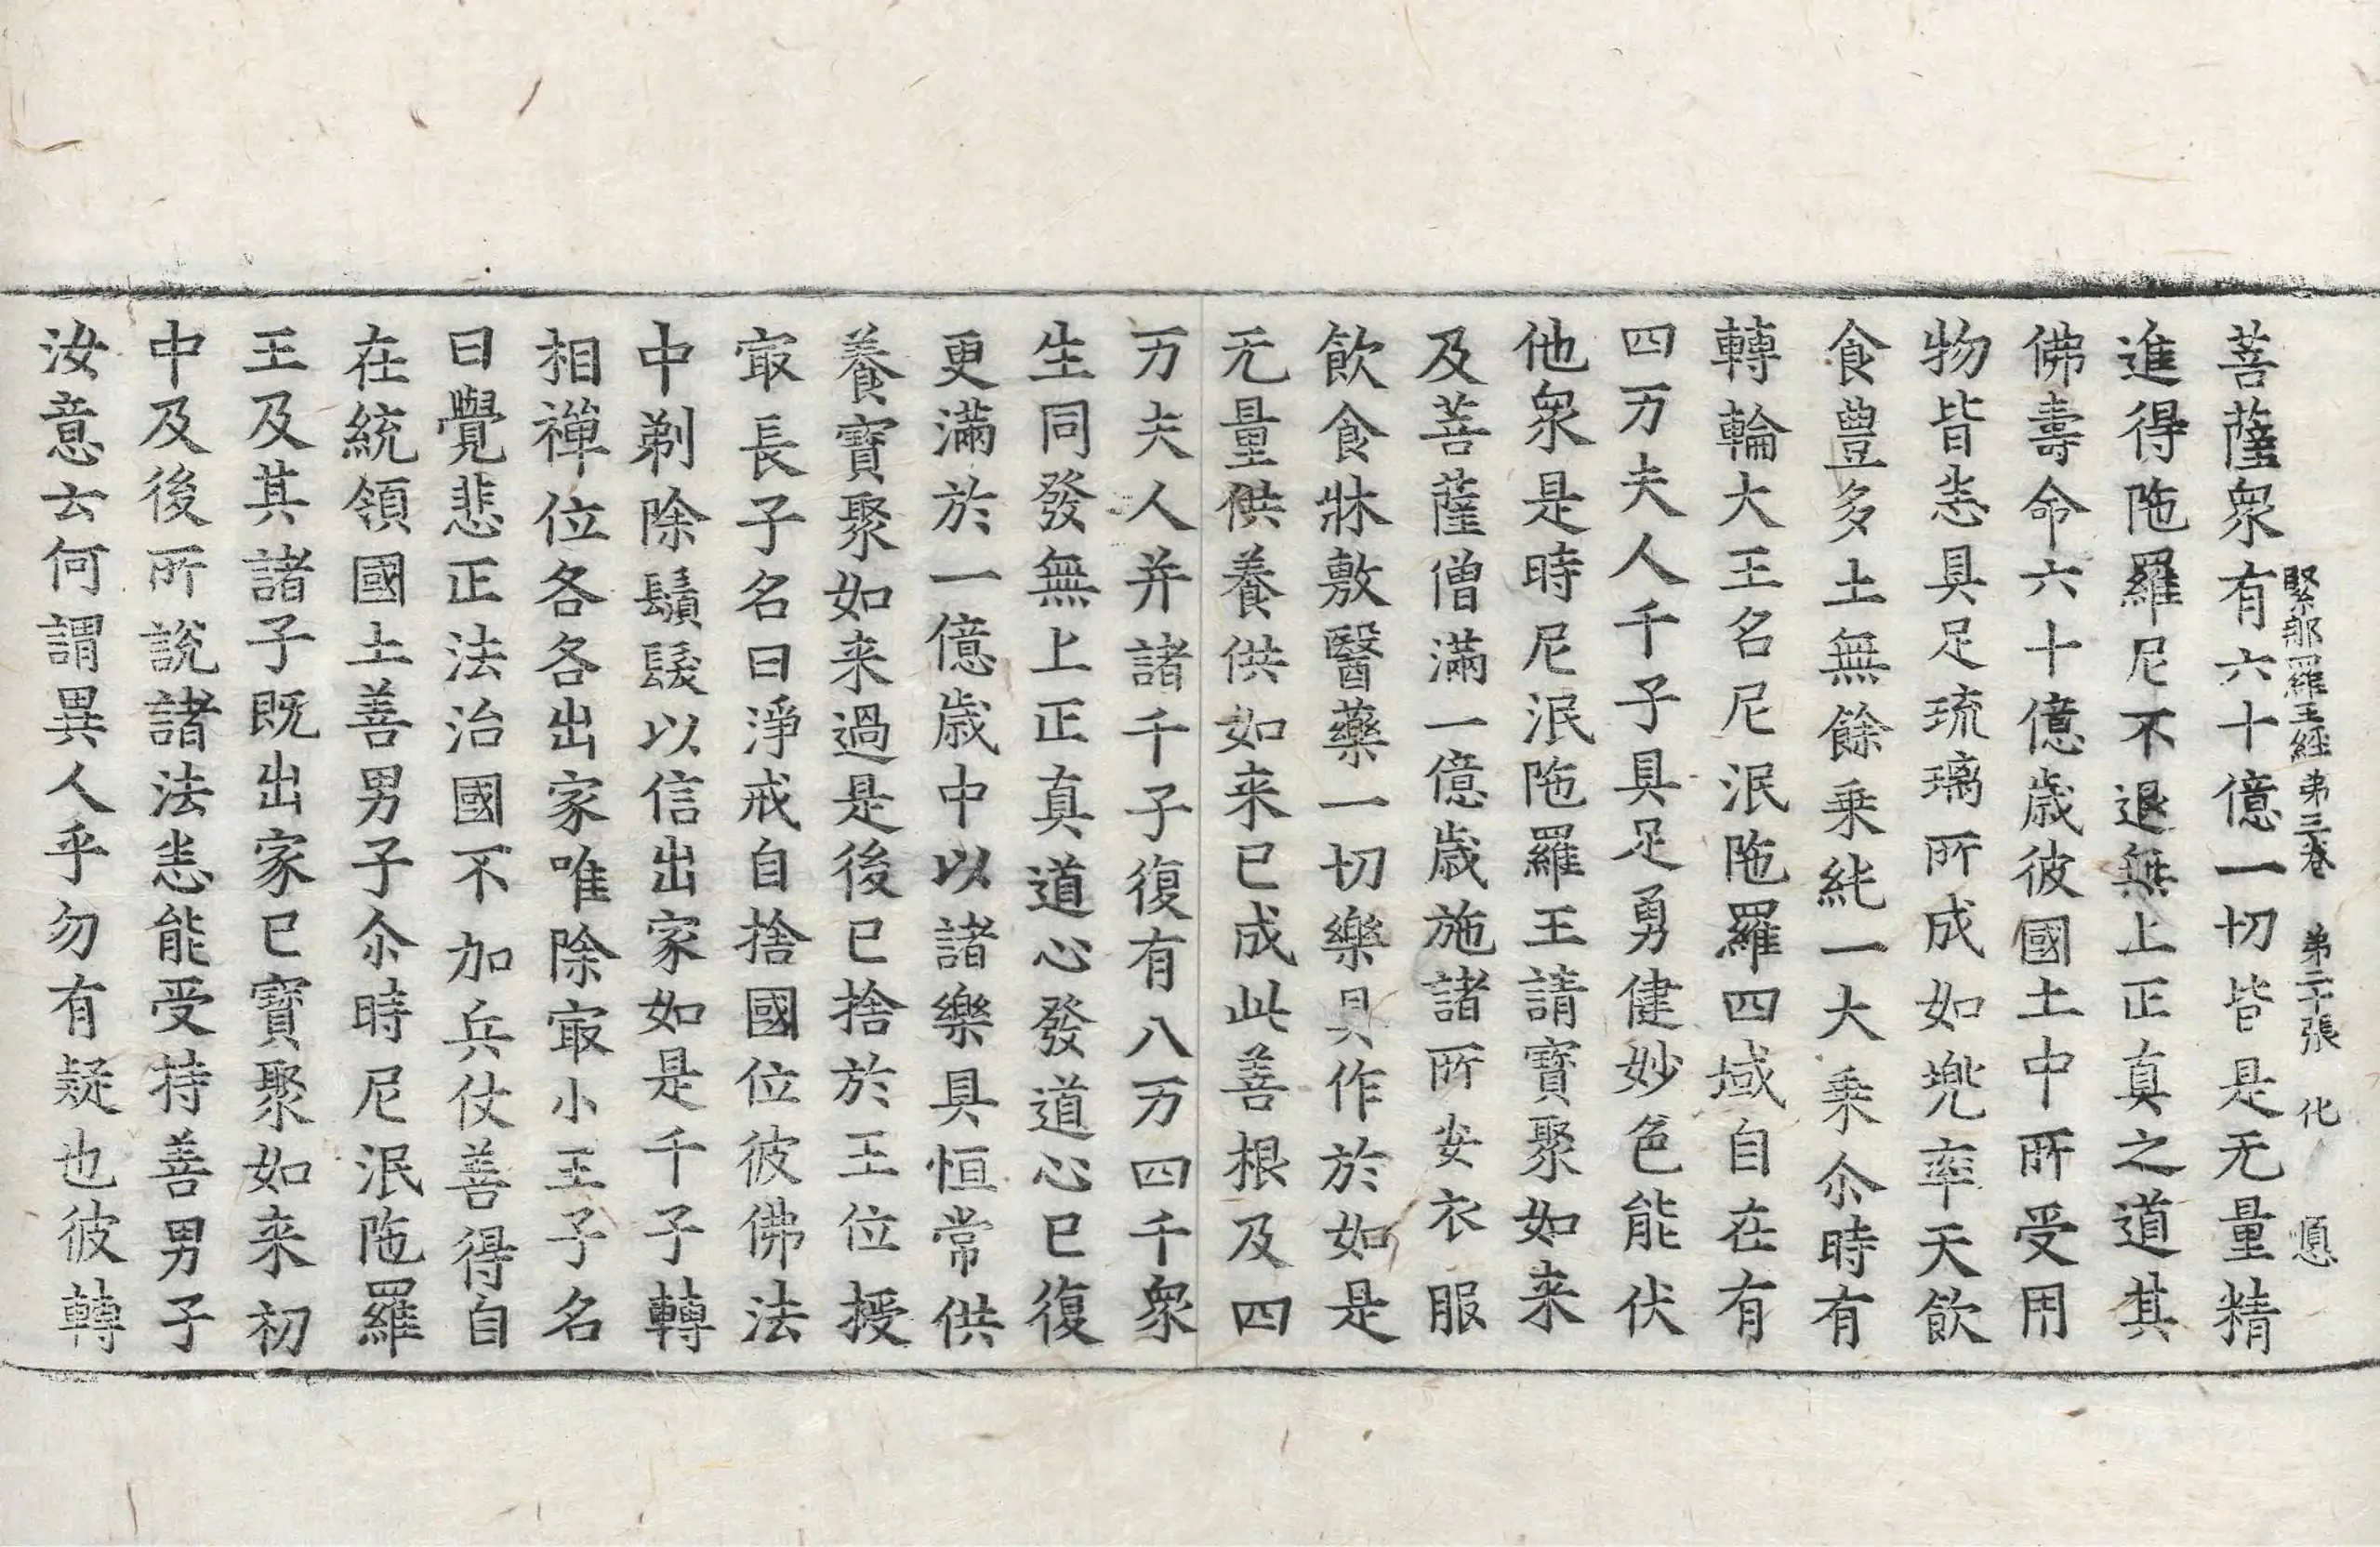 緊那羅王經第三卷 第二十張 化 慎
菩薩衆有六十億一切皆是无量精
進得陁羅尼不退無上正真之道其
佛壽命六十億歲彼國土中所受用
物皆悉具足琉璃所成如兜率天飲
食豊多土無餘乗純一大乗尒時有
轉輪大王名尼泯陁羅四域自在有
四万夫人千子具足勇健妙色能伏
他衆是時尼泯陁羅王請寶聚如来
及菩薩僧滿一億歲施諸所安衣服
飲食牀敷醫藥一切樂具作於如是
无量供養供如来已成此善根及四
万夫人并諸千子復有八万四千衆
生同發無上正真道心發道心已復
更滿於一億歲中以諸樂具恒常供
養寶聚如来過是後已捨於王位授
㝡長子名曰淨戒自捨國位彼佛法
中剃除鬚髮以信出家如是千子轉
相禪位各各出家唯除㝡小王子名
曰覺悲正法治國不加兵仗善得自
在統領國土善男子尒時尼泯陁羅
王及其諸子既出家已寶聚如来初
中及後所說諸法悉能受持善男子
汝意云何謂異人乎勿有疑也彼轉